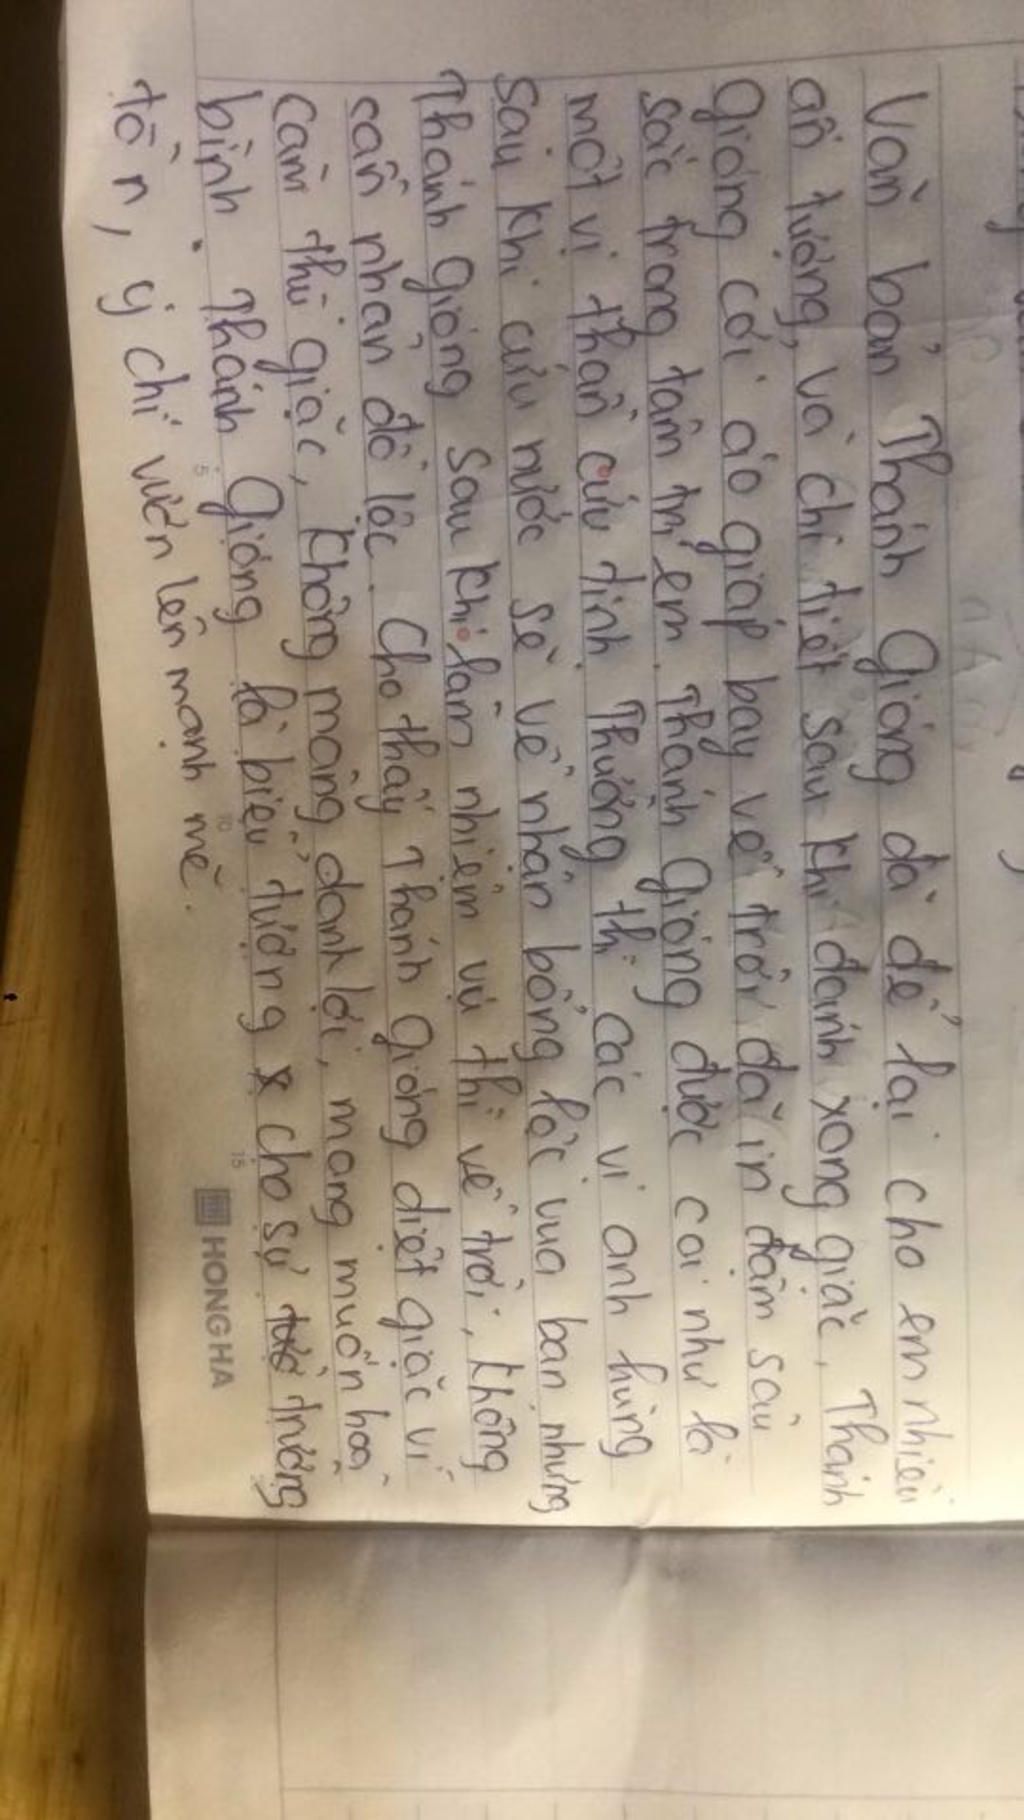 Văn bản Thánh Gióng đã để lại cho em nhiều
ấn tượng, và chi tiết sau khi đánh xong giặc, Thánh
Gióng cởi áo giáp bay về trời đã in đậm sâu
sắc trong tâm trí em. Thánh Gióng được coi như là
một vị thần cứu tinh. Thường thì các vị anh hùng
sau khi cứu nước sẽ về nhận bổng lộc vua ban, nhưng
Thánh Gióng sau khi làm nhiệm vụ thì về trời, không
cần nhận bổ lộc. Cho thấy Thánh Gióng diệt giặc vì
căm thù giặc, không màng danh lợi, mang muốn hoà
bình. Thánh Gióng là biểu tượng cho sự trường
tồn, ý chí vươn lên mạnh mẽ.
5 10 15
HONG HA